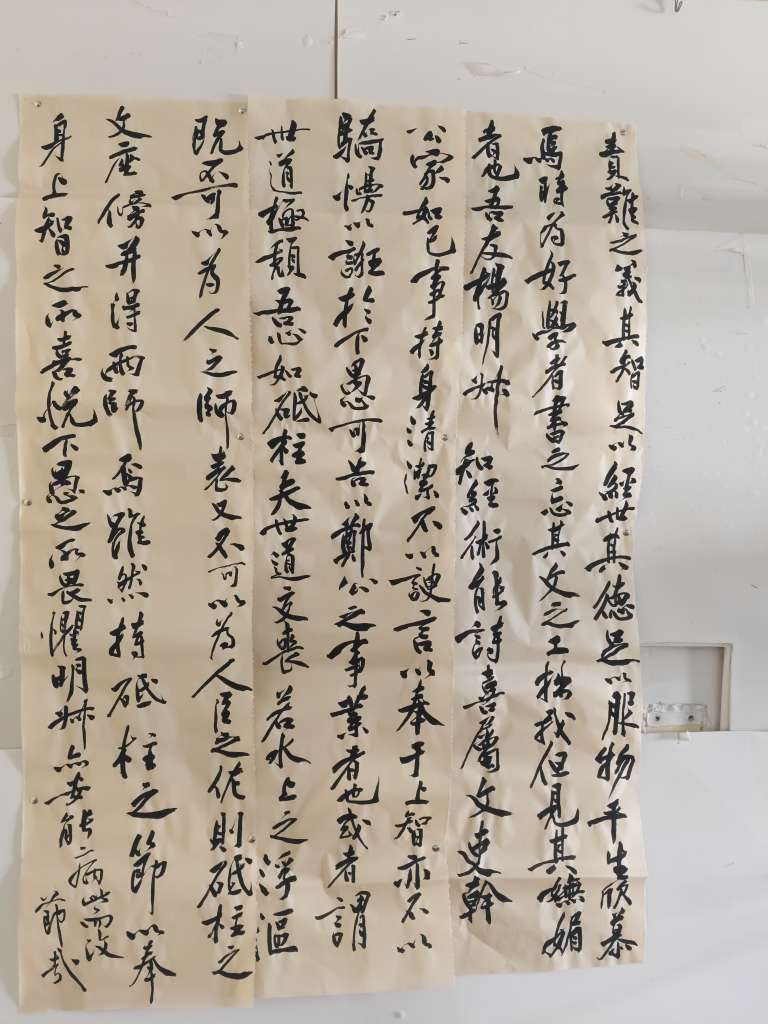 責難之義其智足以經世其德足以服物平生欣慕
焉時為好學者書之忘其文之工拙我但見其嫵媚
者也吾友楊明叔知經術能詩喜屬文吏幹
公家如己事持身清潔不以諛言以奉于上智亦不以
驕慢以誑於下愚可告以鄭公之事業者也或者謂
世道極頹吾心如砥柱夫世道交喪若水上之浮漚
既不可以為人之師表又不可以為人臣之佐則砥柱之
文座傍并得兩師焉雖然持砥柱之節以奉
身上智之所喜悅下愚之所畏懼明叔亦安能病此而改
節哉